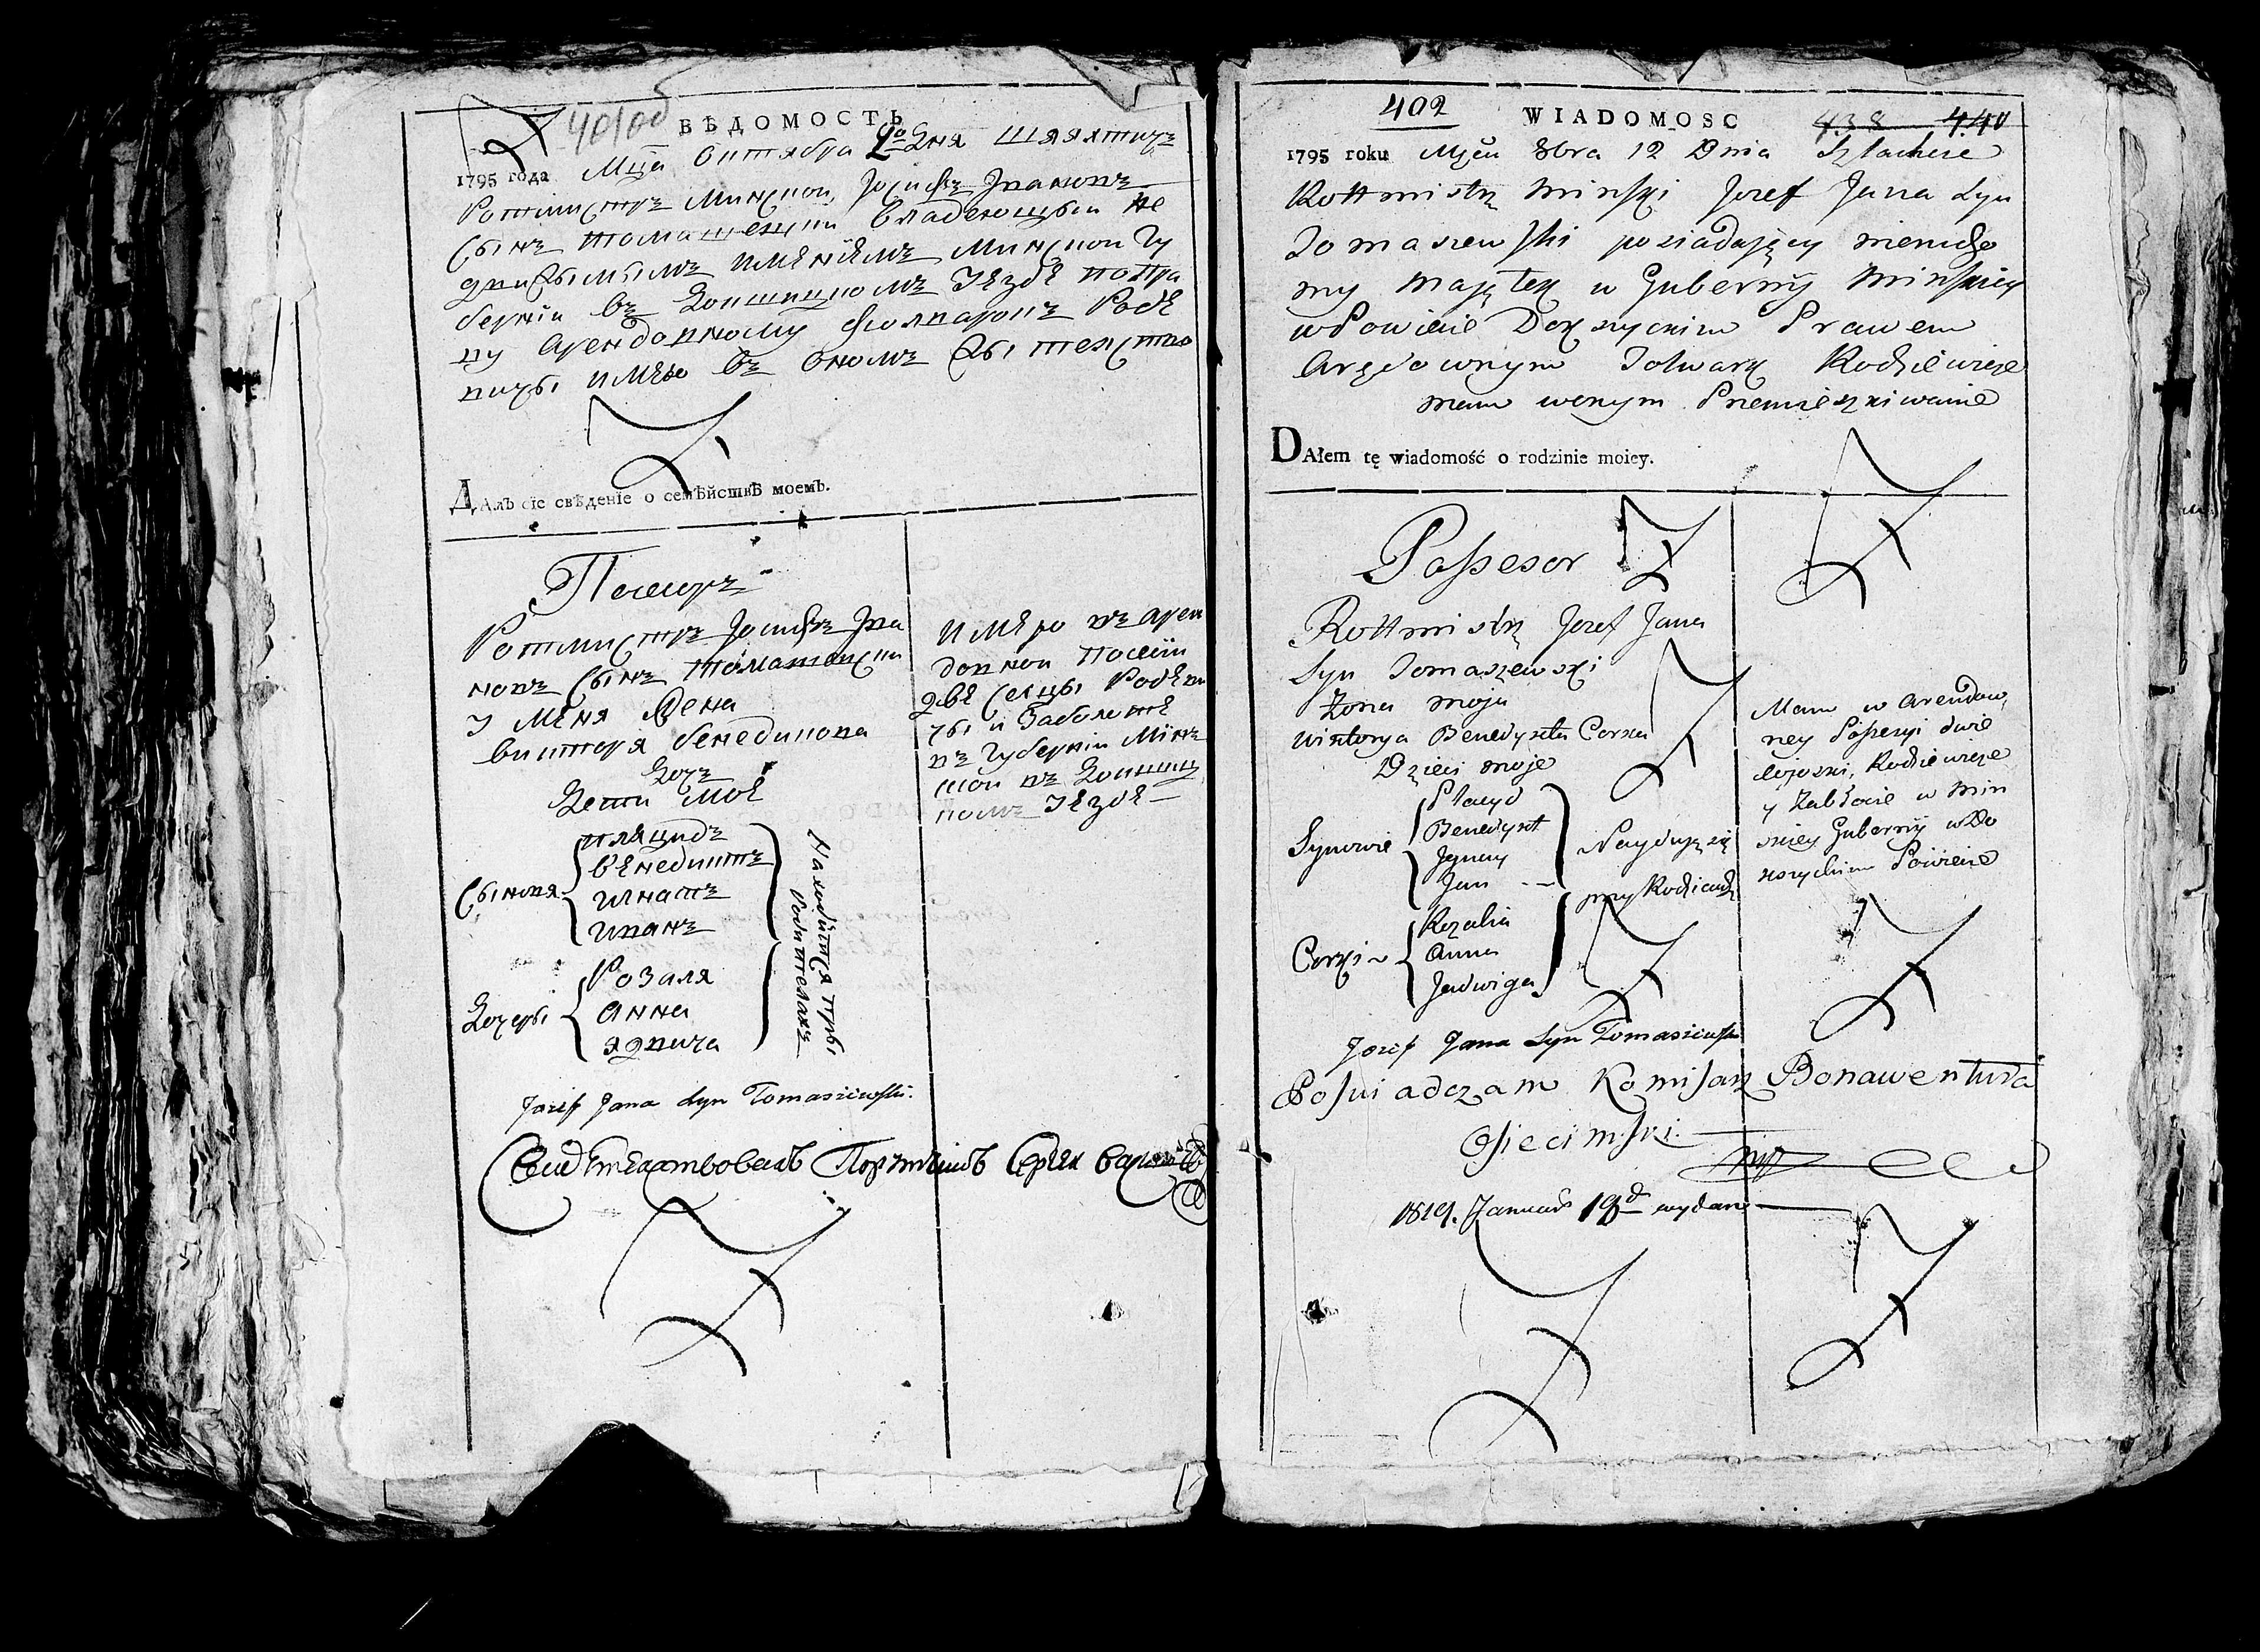 ВѢДОМОСТЬ
1795 года Мца Октября дня Шляхтичъ
Ротмистръ Минской Јосифъ Јвановъ
Сынъ Томашевски владеющый не
движымымъ имѣниемъ Минской Гу
берніи въ Докшицкомъ Уѣздѣ по Пра
ву Арендовному Фолваронъ Родѣ
вичы имѣю въ ономъ жытелство
Далъ сіе свѣденіе о семѣйствѣ моемъ.
Ротмистръ Јосифъ Јва
новъ Сынъ Томашевски
У меня Жена
Викторя Бенедикова
Дочъ
Дети мое
Сыновя
Пляцидъ
Бѣнедиктъ
Игнатъ
Иванъ
Дочеры
Розаля
Анна
Ядвига
Находятся пры
Родителахъ
имѣю въ арен
довной Посесіи
двѣ Селцы Родѣви
чы и Заболотѣ
въ Губерніи Мин
ской въ Докшиц
комъ Уѣздѣ
Jozef Jana Syn Tomaszewski.
Свидѣтелствовалъ Порутчикъ Сергей
402 WIADOMOSC 438 440
1795 roku Mca 8bra 12 Dnia Szlachcic
Rottmistrz Minski Jozef Jana Syn
Tomaszewski posiadaiący nierucho
my Majątek w Gubernij Minskiey
w Powiecie Dokszyckim Prawem
Arędownym Folwark Rodziewicze
mam w onym Przemieszkiwanie
DAłem tę wiadomość o rodzinie moiey.
Possesor
Rottmistrz Jozef Jana
Syn Tomaszewski
Zona moja
Wiktorya Benedykta Corka
Dzieci moje
Synowie
Placyd
Benedykt
Jgnacy
Jan
Corki
Rozalia
Anna
Jadwiga
Nayduią się
przy Rodzicach
Mam w Arendow,
ney Possesyi dwie
Rodziewicze
y Zabłocie w Min
skiey Gubernij w Do
kszyckim Powiecie
Jozef Jana Syn Tomaszewski
Poswiadczam Komisarz Bonawentura
Osiecimski
1819. Januar 19d wydany